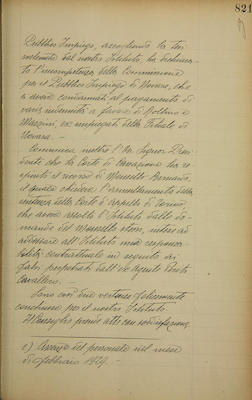 821
Pubblico Impiego, accogliendo la tesi
sostenuta dal nostro Istituto, ha dichiarato
l'incompetenza della Commissione
per il Pubblico Impiego di Novara, che
ci aveva condannati al pagamento di
varie indennità a favore di
ex impiegati della Filiale di
Novara. -
Comunica inoltre l'On. Signor Presidente
che la Corte di Cassazione ha respinto
il ricorso di Monsello Bernardo,
il quale chiedeva l'annullamento della
sentenza della Corte d'Appello di Torino,
che aveva assolto l'Istituto dalle domande
del Monsello stesso, intese ad
addossare all'Istituto una responsabilità
contrattuale in seguito ai
falsi perpetrati dall'ex Agente
Cavallero. -
Sono così due vertenze felicemente
concluse per il nostro Istituto.
Il Consiglio prende atto con soddisfazione.
c) Avanzo del personale nel mese
di febbraio 1929. -